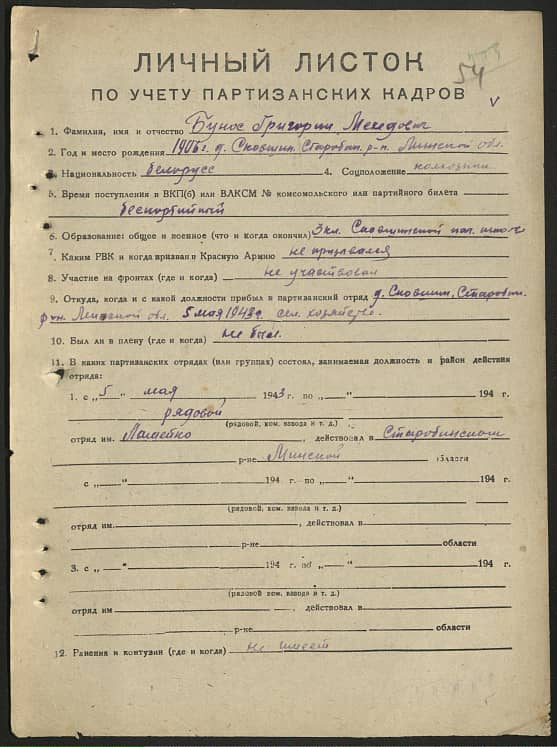 54
ЛИЧНЫЙ ЛИСТОК
ПО УЧЕТУ ПАРТИЗАНСКИХ КАДРОВ
1. Фамилия, имя и отчество Бунос Григорий
2. Год и место рождения 1906 г. д. Старобин. р-н. Минской обл.
Национальность белорусс 4. Соцположение колхозник
5. Время поступления в ВКП(б) или ВЛКСМ № комсомольского или партийного билета
беспартийный
6. Образование: общее и военное (что и когда окончил) 3 кл.
7. Каким РВК и когда призван в Красную Армию не призывался
8. Участие на фронтах (где и когда) не участвовал
9. Откуда, когда и с какой должности прибыл в партизанский отряд д. Старобин.
р-н. Минской обл. 5 мая 1943 г. сел. хозяйство.
10. Был ли в плену (где и когда) не был.
11. В каких партизанских отрядах (или группах) состоял, занимаемая должность и район действия
отряда:
1. с „5" мая 1943 г. по „ " 194 г.
рядовой
(рядовой, ком. взвода и т. д.)
отряд им. , действовал в Старобинском
р-не Минской области
с „ " 194 г. по „ " 194 г.
(рядовой, ком. взвода и т. д.)
отряд им. , действовал в
р-не области
3. с „ " 194 г. по „ " 194 г.
(рядовой ком. взвода и т. д.)
отряд им , действовал в
р-не области
12. Ранения и контузии (где и когда) не имеет